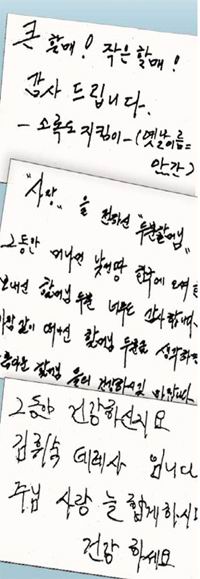 큰 할매! 작은 할매!
감사 드립니다.
- 소록도 지킴이 - (옛날이름=
안간)
"사랑"을 전하신 "두분할머님"
그동안 머나먼 낯선땅 한국에 오셔
보내신 할머님 두분 너무도 감사합니다.
같이 떠나신 할머님 두분을 생각하면
할머님
그동안 건강하신지요
김휘숙 데레사 입니다
주님 사랑 늘 함께하시
건강 하세요